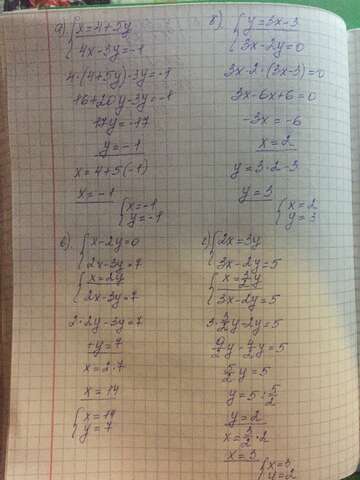 а) { x=4+5y
4x-3y=-1
4·(4+5y)-3y=-1
16+20y-3y=-1
17y=-17
y=-1
x=4+5(-1)
x=-1
{ x=-1
y=-1
б) { y=3x-3
3x-2y=0
3x-2·(3x-3)=0
3x-6x+6=0
-3x=-6
x=2
y=3·2-3
y=3
{ x=2
y=3
в) { x-2y=0
2x-3y=7
{ x=2y
2x-3y=7
2·2y-3y=7
y=7
x=2·7
x=14
{ x=14
y=7
г) { 2x=3y
3x-2y=5
{ x=3/2y
3x-2y=5
3·3/2y-2y=5
9/2y-4/2y=5
5/2y=5
y=5:5/2
y=2
x=3/2·2
x=3
{ x=3
y=2